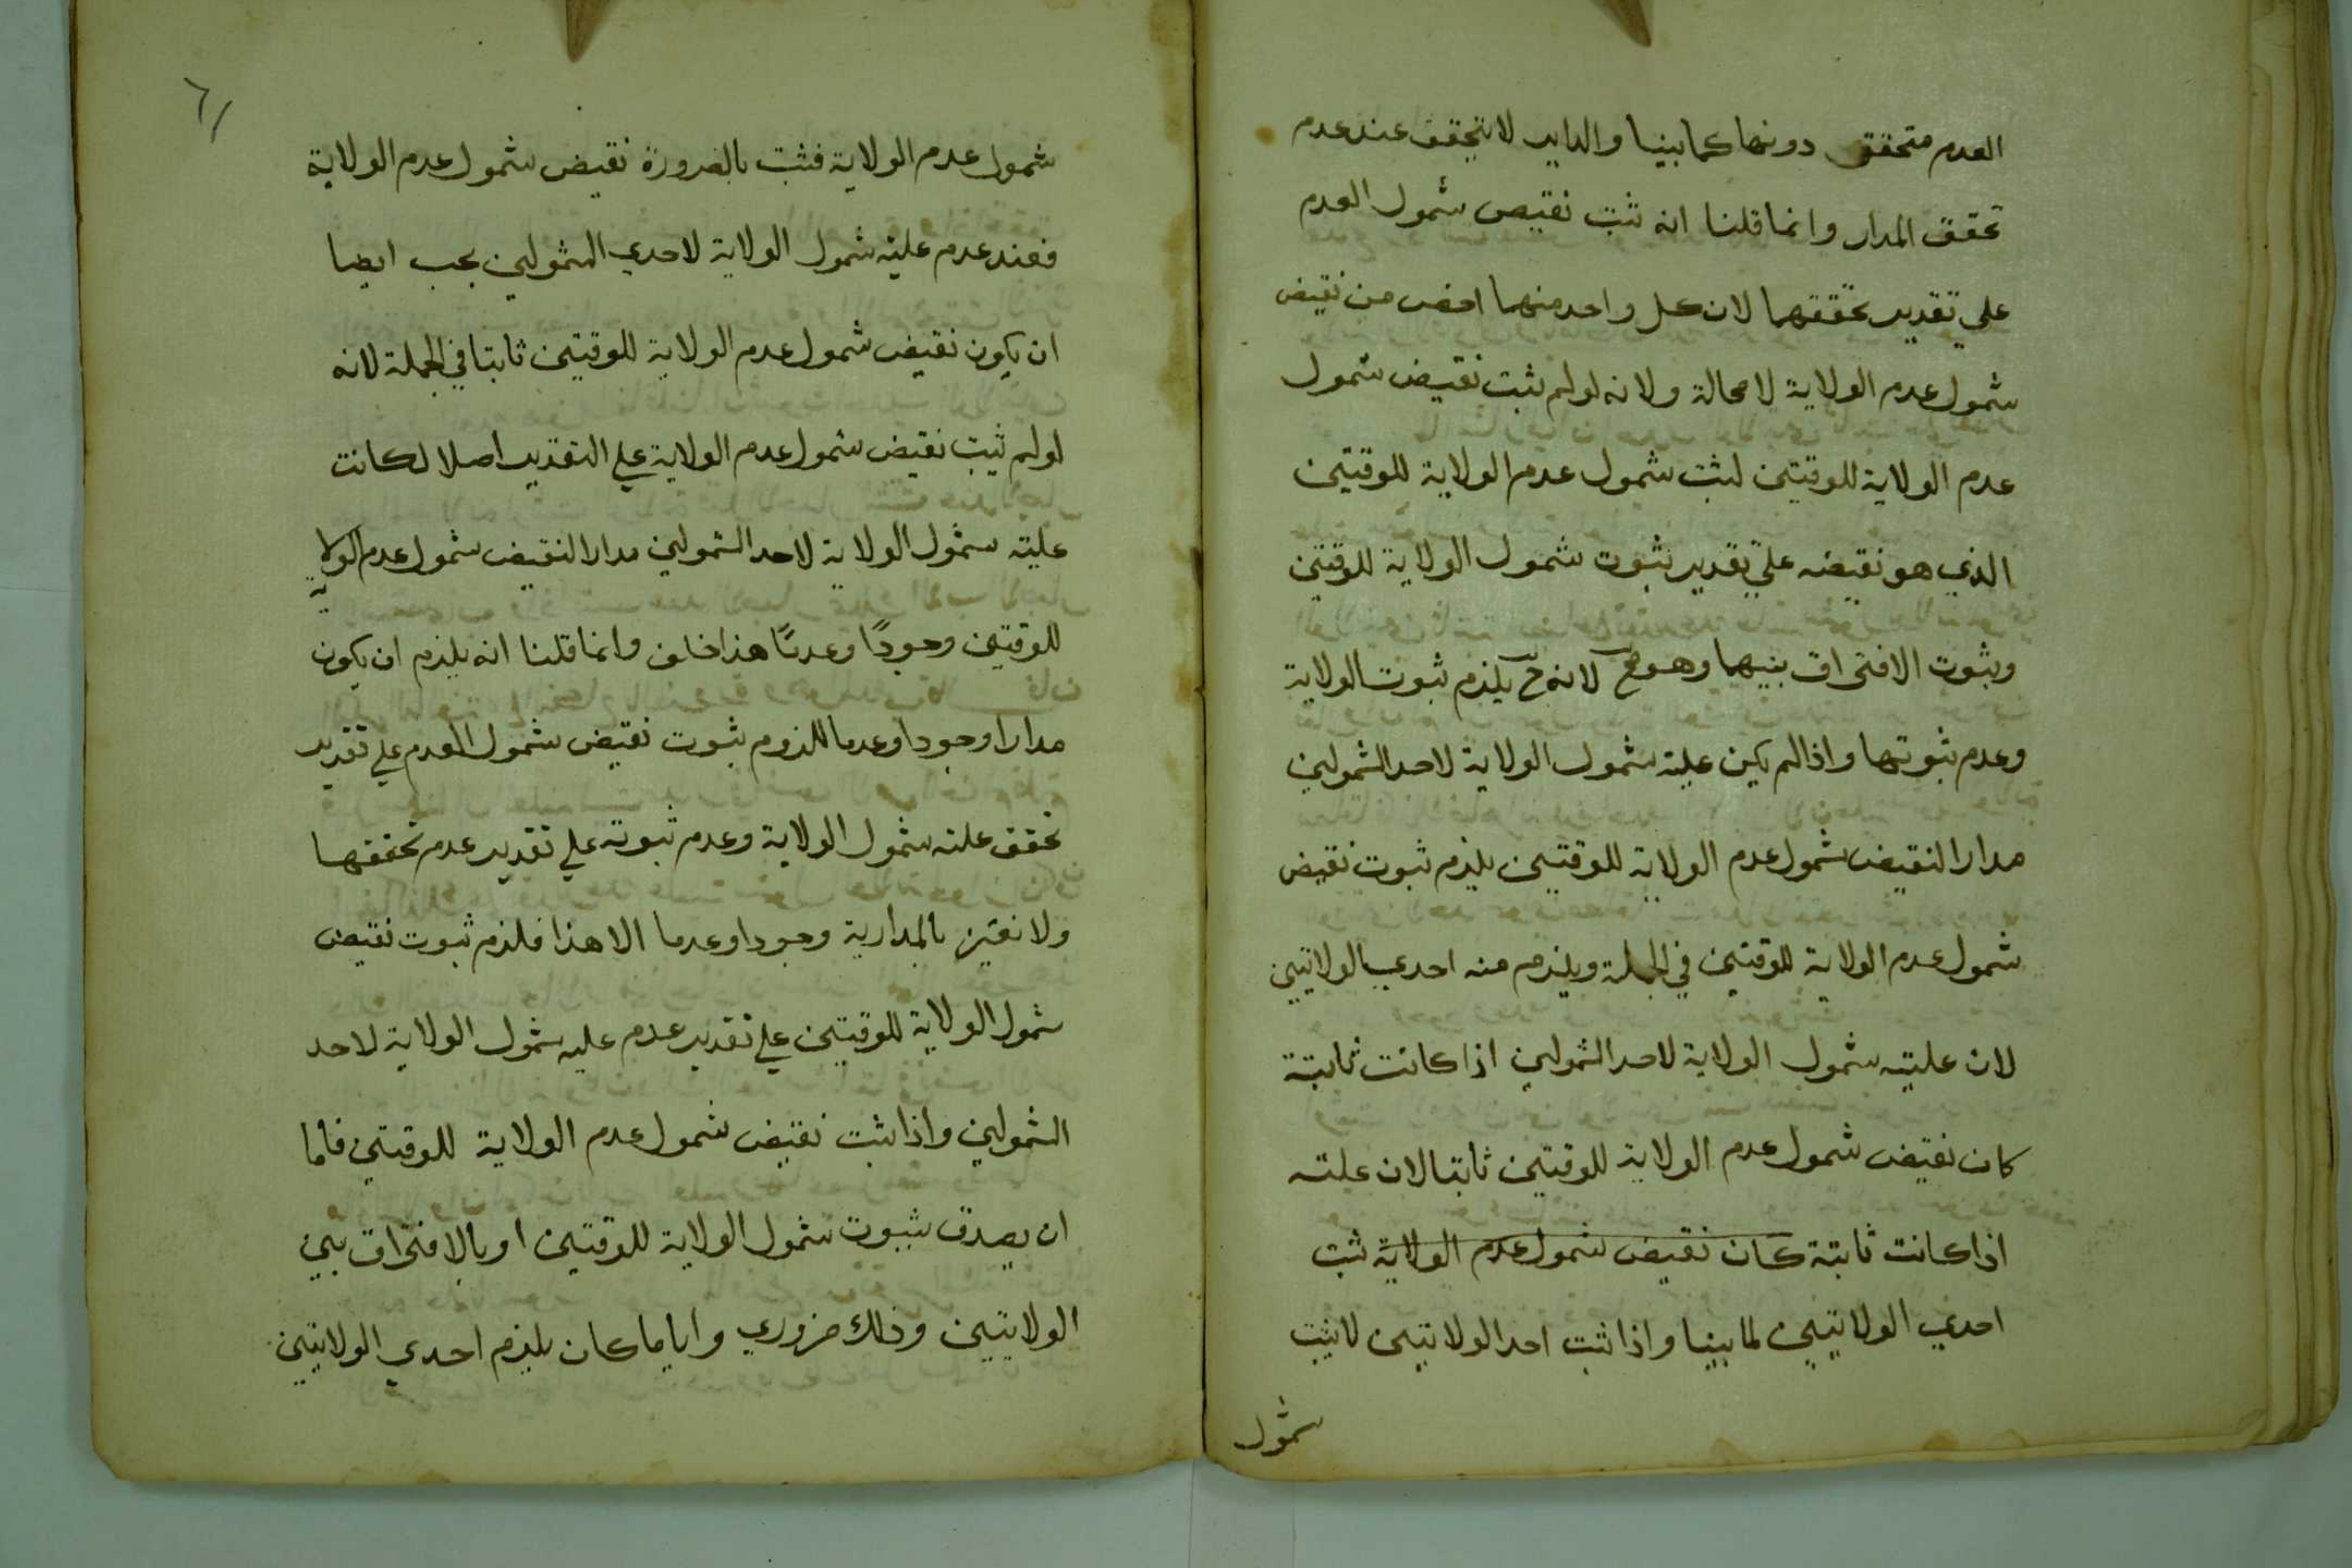 العدم متحقق دونها كما بينا والداير لا يتحقق عند عدم
تحقق المدار وانما قلنا انه ثبت نقيض شمول العدم
علي تقدير تحققهما لان كل واحد منهما اخص من نقيض
شمول عدم الولاية لا محالة ولانه لو لم يثبت نقيض شمول
عدم الولاية للوقتين لثبت شمول عدم الولاية للوقتين
الذي هو نقيضه علي تقدير ثبوت شمول الولاية للوقتين
وثبوت الافتراق بينهما وهو مح لانه ح يلزم ثبوت الولاية
وعدم ثبوتها واذا لم يكن علية شمول الولاية لاحد الشمولين
مدارا لنقيض شمول عدم الولاية للوقتين يلزم ثبوت نقيض
شمول عدم الولاية للوقتين في الجملة ويلزم منه احدي الولايتين
لان علية شمول الولاية لاحد الشمولين اذا كانت ثابتة
كان نقيض شمول عدم الولاية للوقتين ثابتا لان علته
اذا كانت ثابتة كان نقيض شمول عدم الولاية ثبت
احدي الولايتين لما بينا واذا ثبت احد الولايتين لا يثبت
شمول
٦١
شمول عدم الولاية فثبت بالضرورة نقيض شمول عدم الولاية
فعند عدم علية شمول الولاية لاحدي الشمولين يجب ايضا
ان يكون نقيض شمول عدم الولاية للوقتين ثابتا في الجملة لانه
لو لم يثبت نقيض شمول عدم الولاية علي التقدير اصلا لكانت
علية شمول الولاية لاحد الشمولين مدارا لنقيض شمول عدم الولاية
للوقتين وجودًا وعدمًا هذا خلف وانما قلنا انه يلزم ان يكون
مدارا وجودا وعدما للزوم ثبوت نقيض شمول العدم علي تقدير
تحقق علية شمول الولاية وعدم ثبوته علي تقدير عدم تحققها
ولا نعني بالمدارية وجودا وعدما الا هذا فلزم ثبوت نقيض
شمول الولاية للوقتين علي تقدير عدم علية شمول الولاية لاحد
الشمولين واذا ثبت نقيض شمول عدم الولاية للوقتين فاما
ان يصدق بثبوت شمول الولاية للوقتين او بالافتراق بين
الولايتين وذلك ضروري وايا ما كان يلزم احدي الولايتين